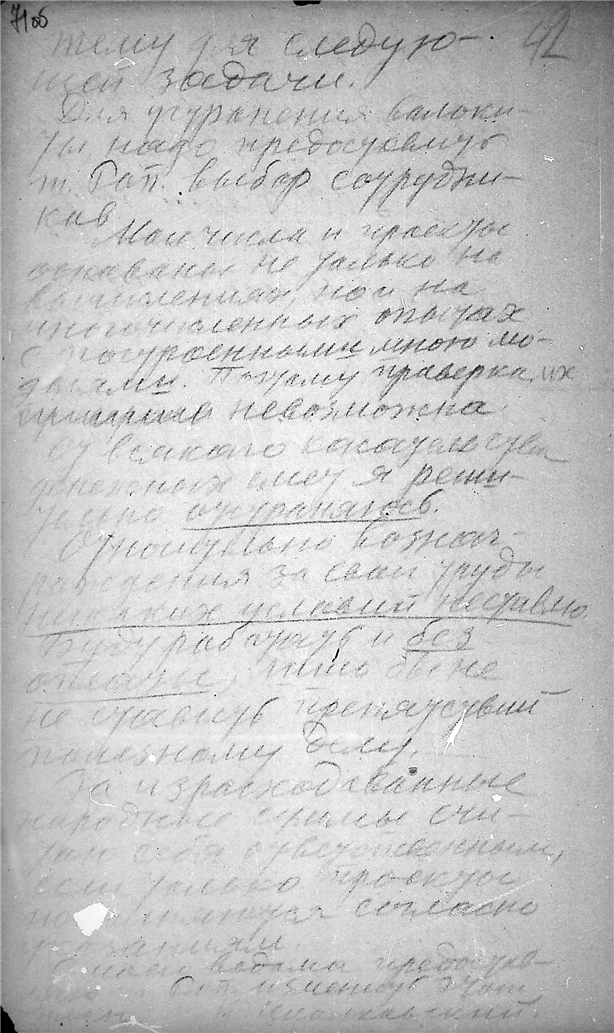 71об
42
тему для следую-
щей задачи.
Для устранения волоки-
ты надо предоставить
т. Рап. выбор сотрудни-
ков
Мои числа и проекты
основаны не только на
вычислениях, но и на
многочисленных опытах
с построенными мною мо-
делями. Потому проверка их
невозможна.
От всякого касательства
денежных смет я реши-
тельно отстраняюсь.
Относительно вознаг-
раждения за свои труды
никаких условий не ставлю.
Буду работать и без
оплаты, лишь бы не
не ставить препятствий
полезному делу.
За израсходованные
народные суммы счи-
таю себя ответственным,
если только проекты
исполняются согласно
указаниям.
С моего ведома предостав-
Рап. изменять
Циолковский.